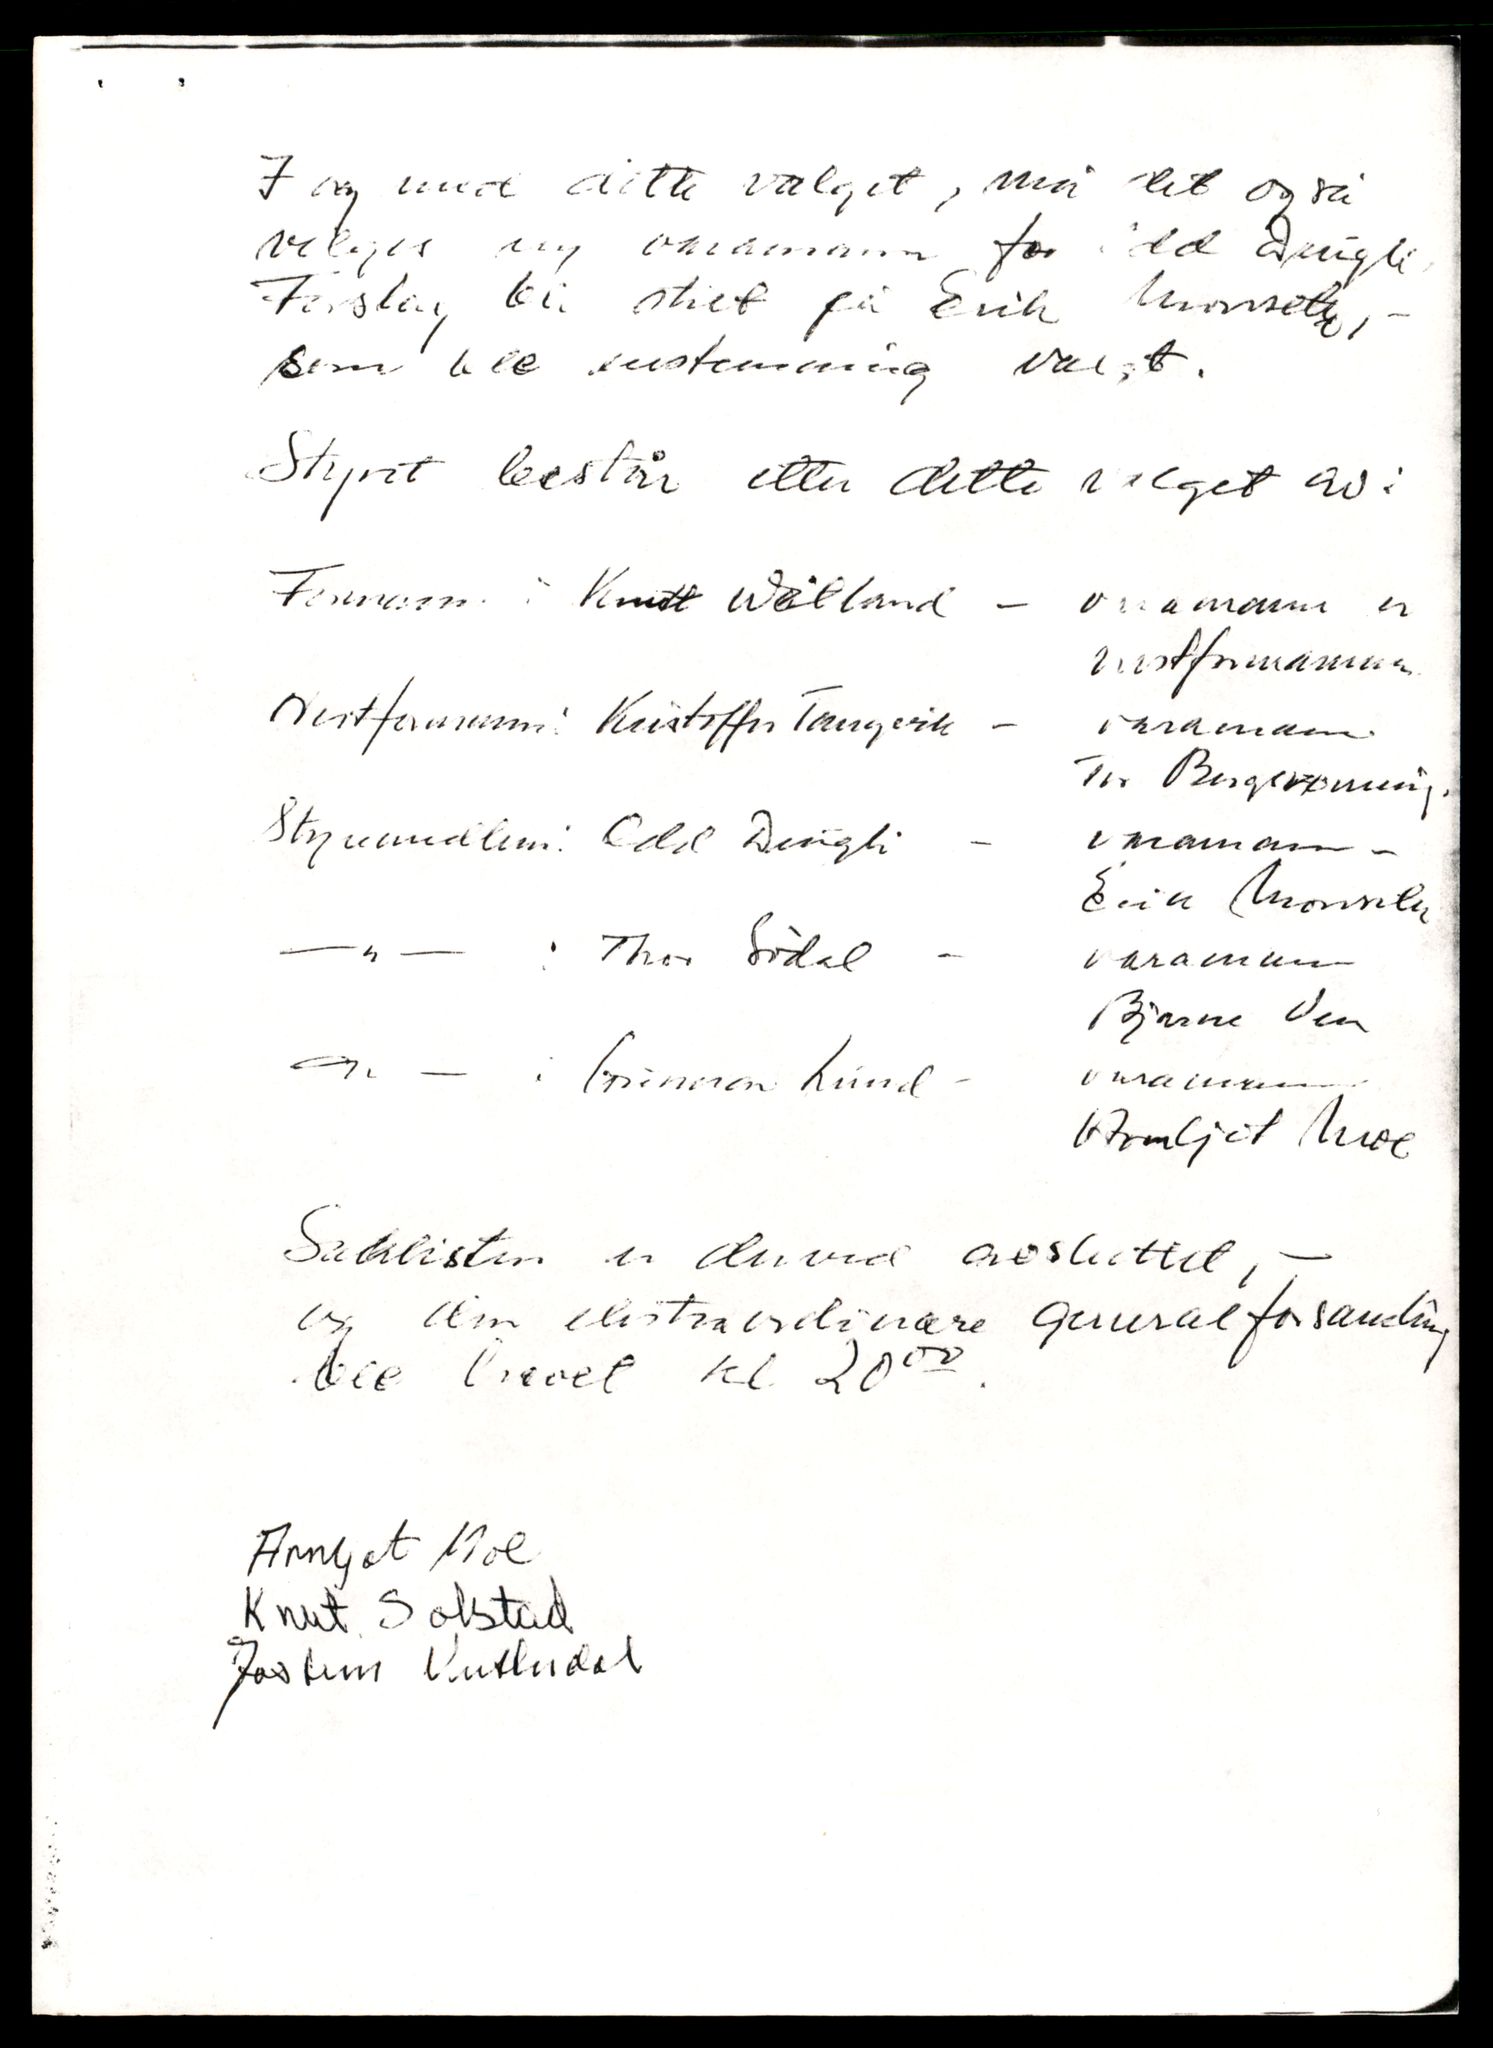 I og med dette valget, må det også
velges ny varamann for Odd Dingli.
Forslag ble stilt på Erik Monseth, -
som ble enstemmig valgt.
Styret består etter dette valget av:
Formann : Knut Wølland - varamann er
nestformannen
Nestformann: Kristoffer Tangvik - varamann
Tor Bergrønning.
Styremedlem: Odd Dingli - varamann -
Erik Monseth
—"— : Thor Södal - varamann
Bjarne Ven
—"— : Gunnar Lund - varamann
Arnljot Moe
Saklisten er derved avsluttet, -
og den ekstraordinære generalforsamling
ble hevet kl 20⁰⁰.
Arnljot Moe
Knut Solstad
Jostein